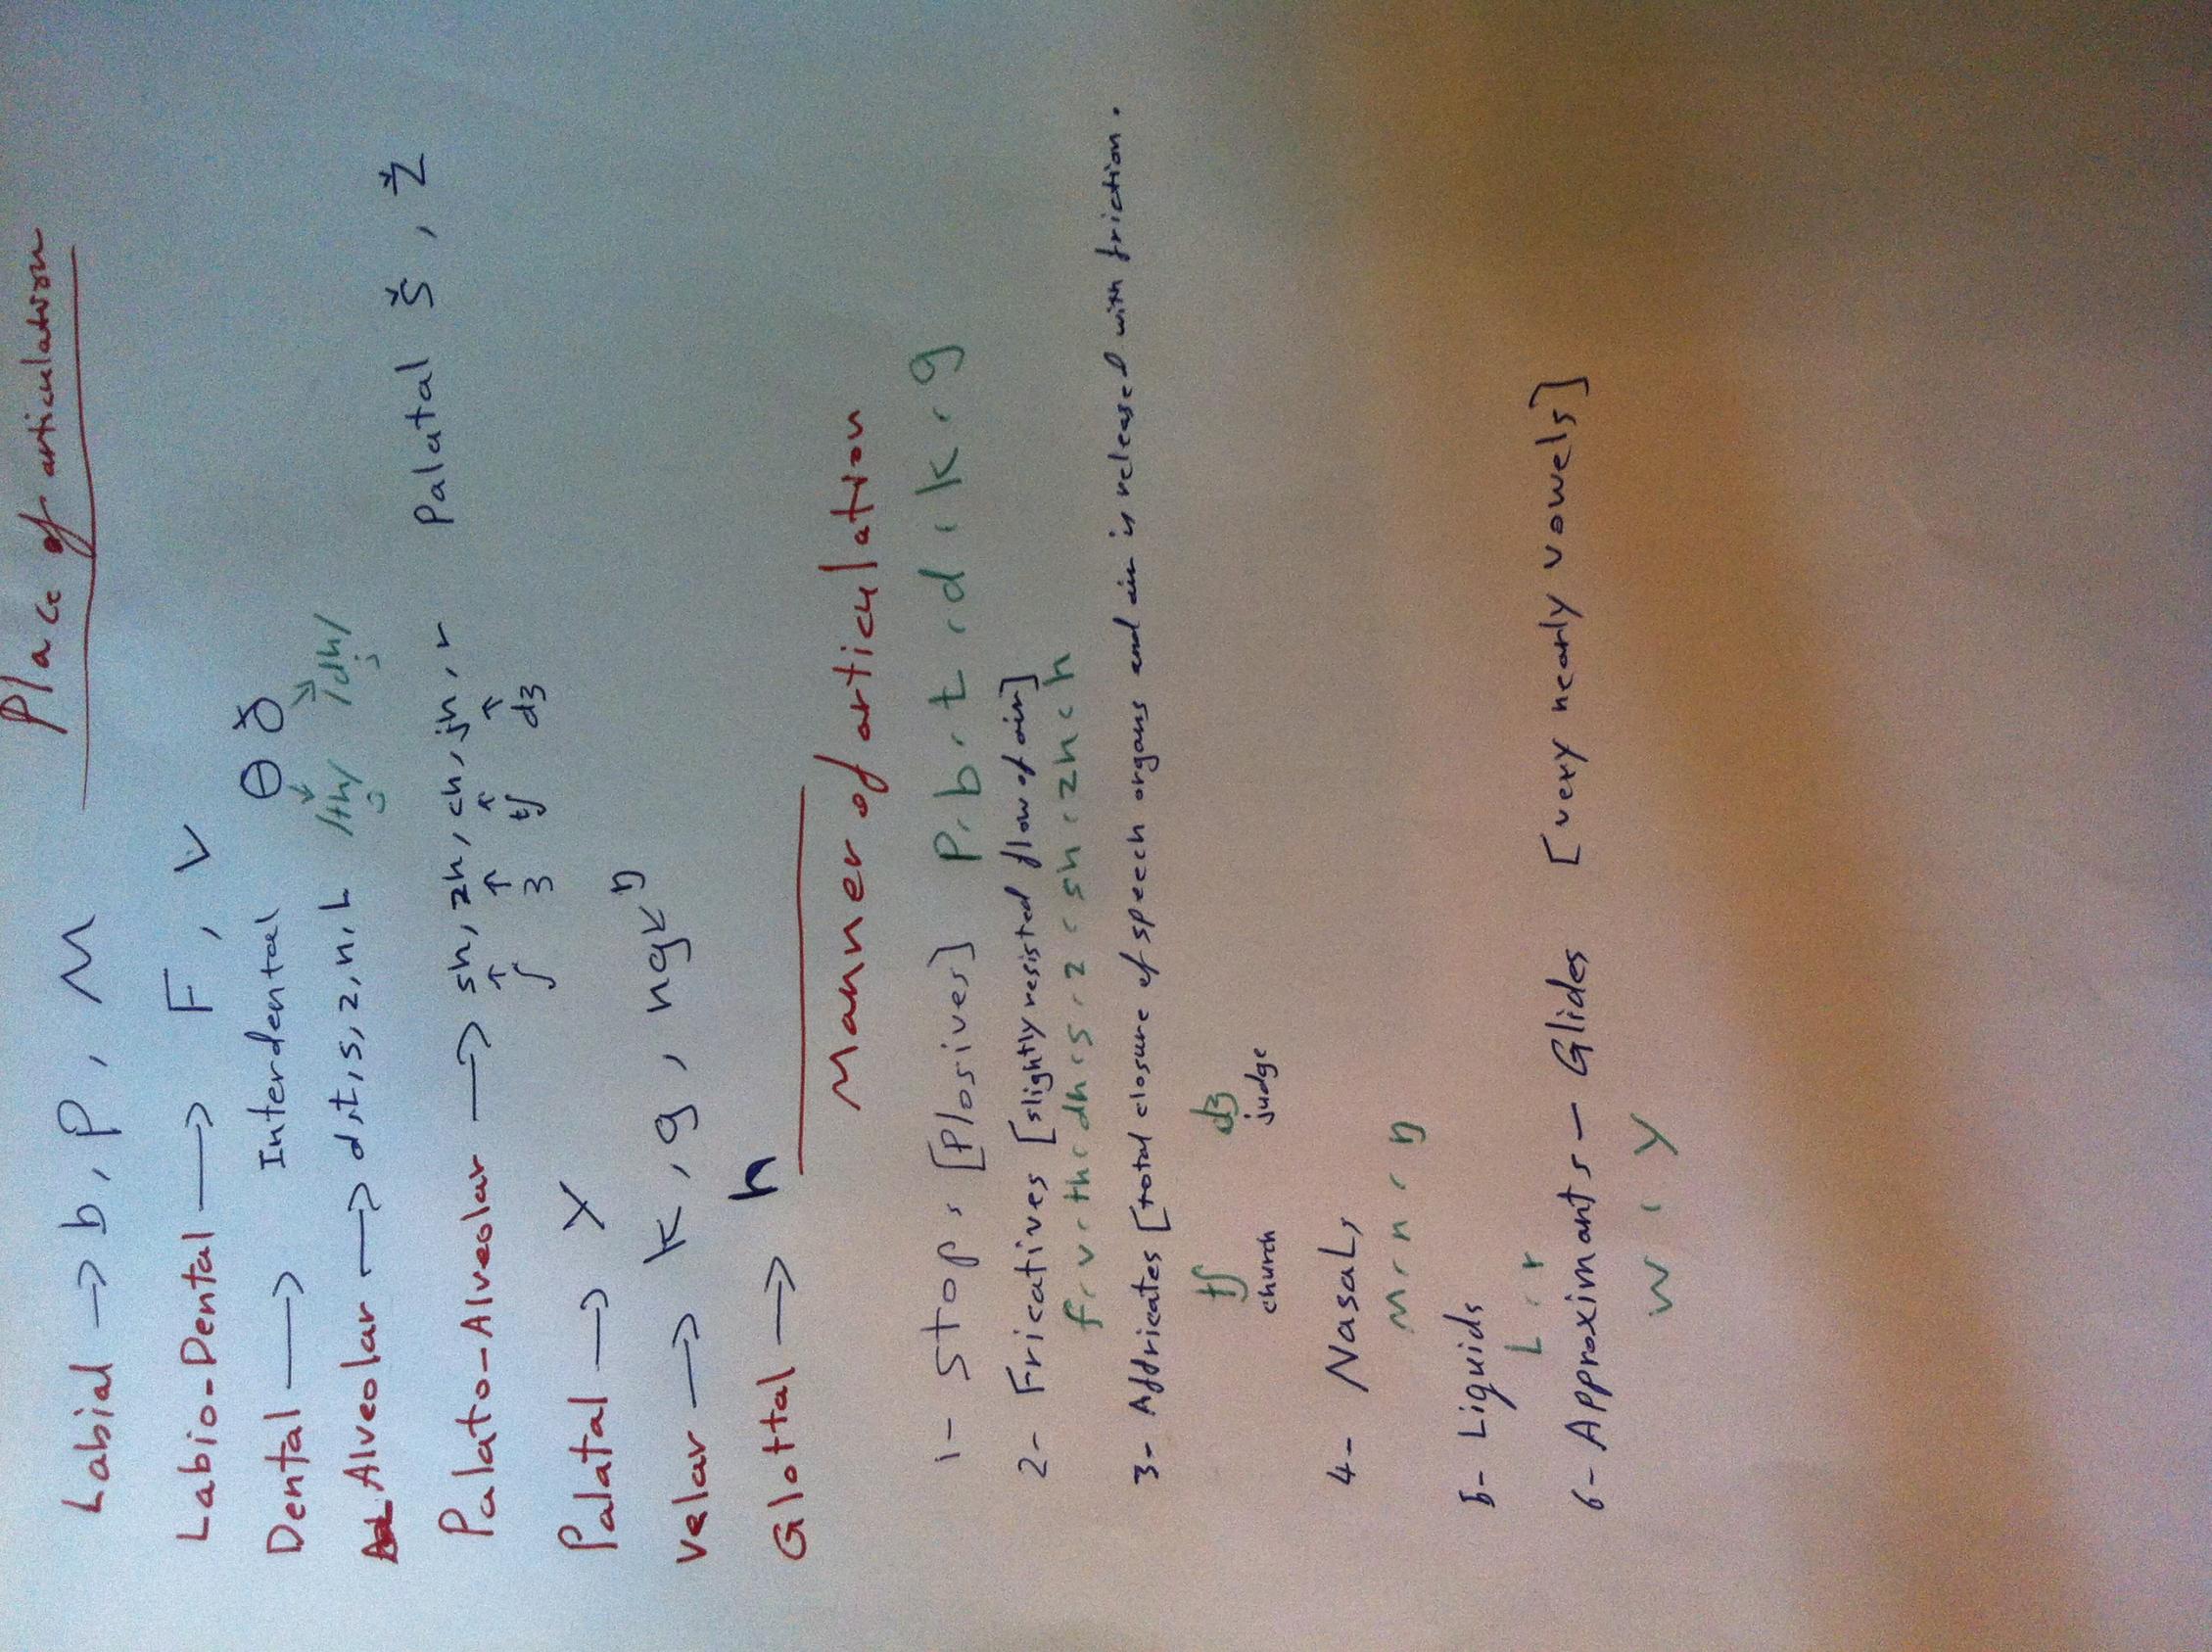 Place of articulation
Labial → b, P, M
Labio-Dental → F, V
Dental → Interdental θ ð
/th/ /dh/
Alveolar → d,t,s,z,n,L
Palato-Alveolar → sh, zh, ch, jh, r Palatal š, ž
ʃ ʒ tʃ dʒ
Palatal → Y
Velar → K, g, ng ŋ
Glottal → h
Manner of articulation
1- Stops [Plosives] P, b, t, d, k, g
2- Fricatives [slightly resisted flow of air]
f, v, th, dh, s, z, sh, zh, h
3- Affricates [total closure of speech organs and air is released with friction.
tʃ dʒ
church judge
4- Nasals
M, n, ŋ
5- Liquids
L, r
6- Approximants - Glides [very nearly vowels]
w, y